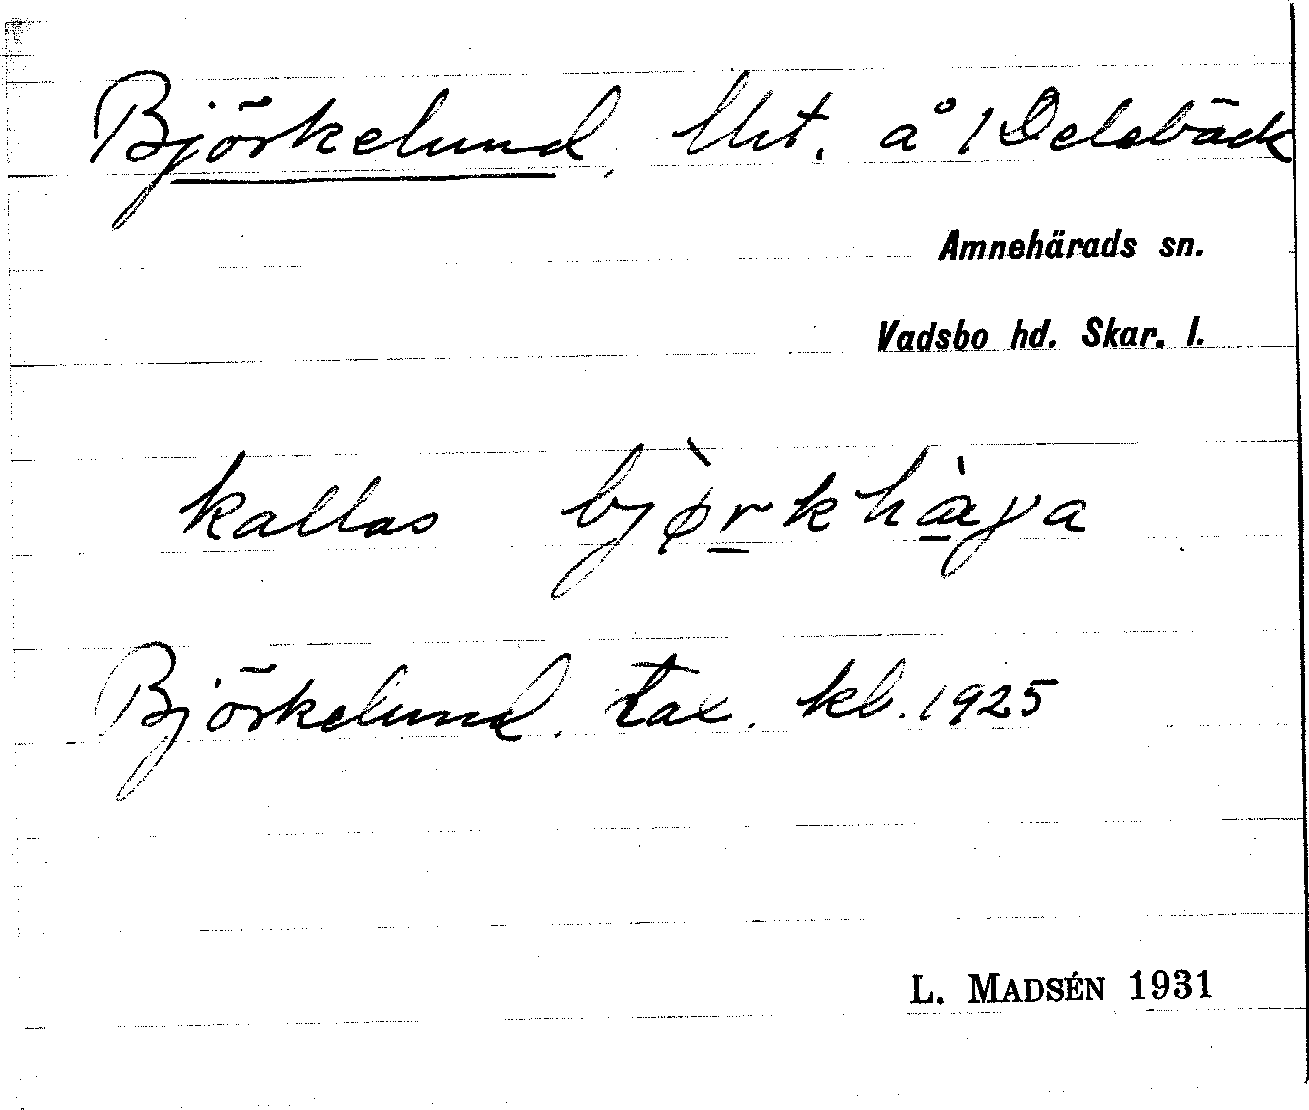 Björkelund, lht. å 1 Delebäck
Amnehärads sn.
Vadsbo hd. Skar. l.
kallas bjø̀rkhàγa
Björkelund. tax. kl. 1925
L. MADSÉN 1931